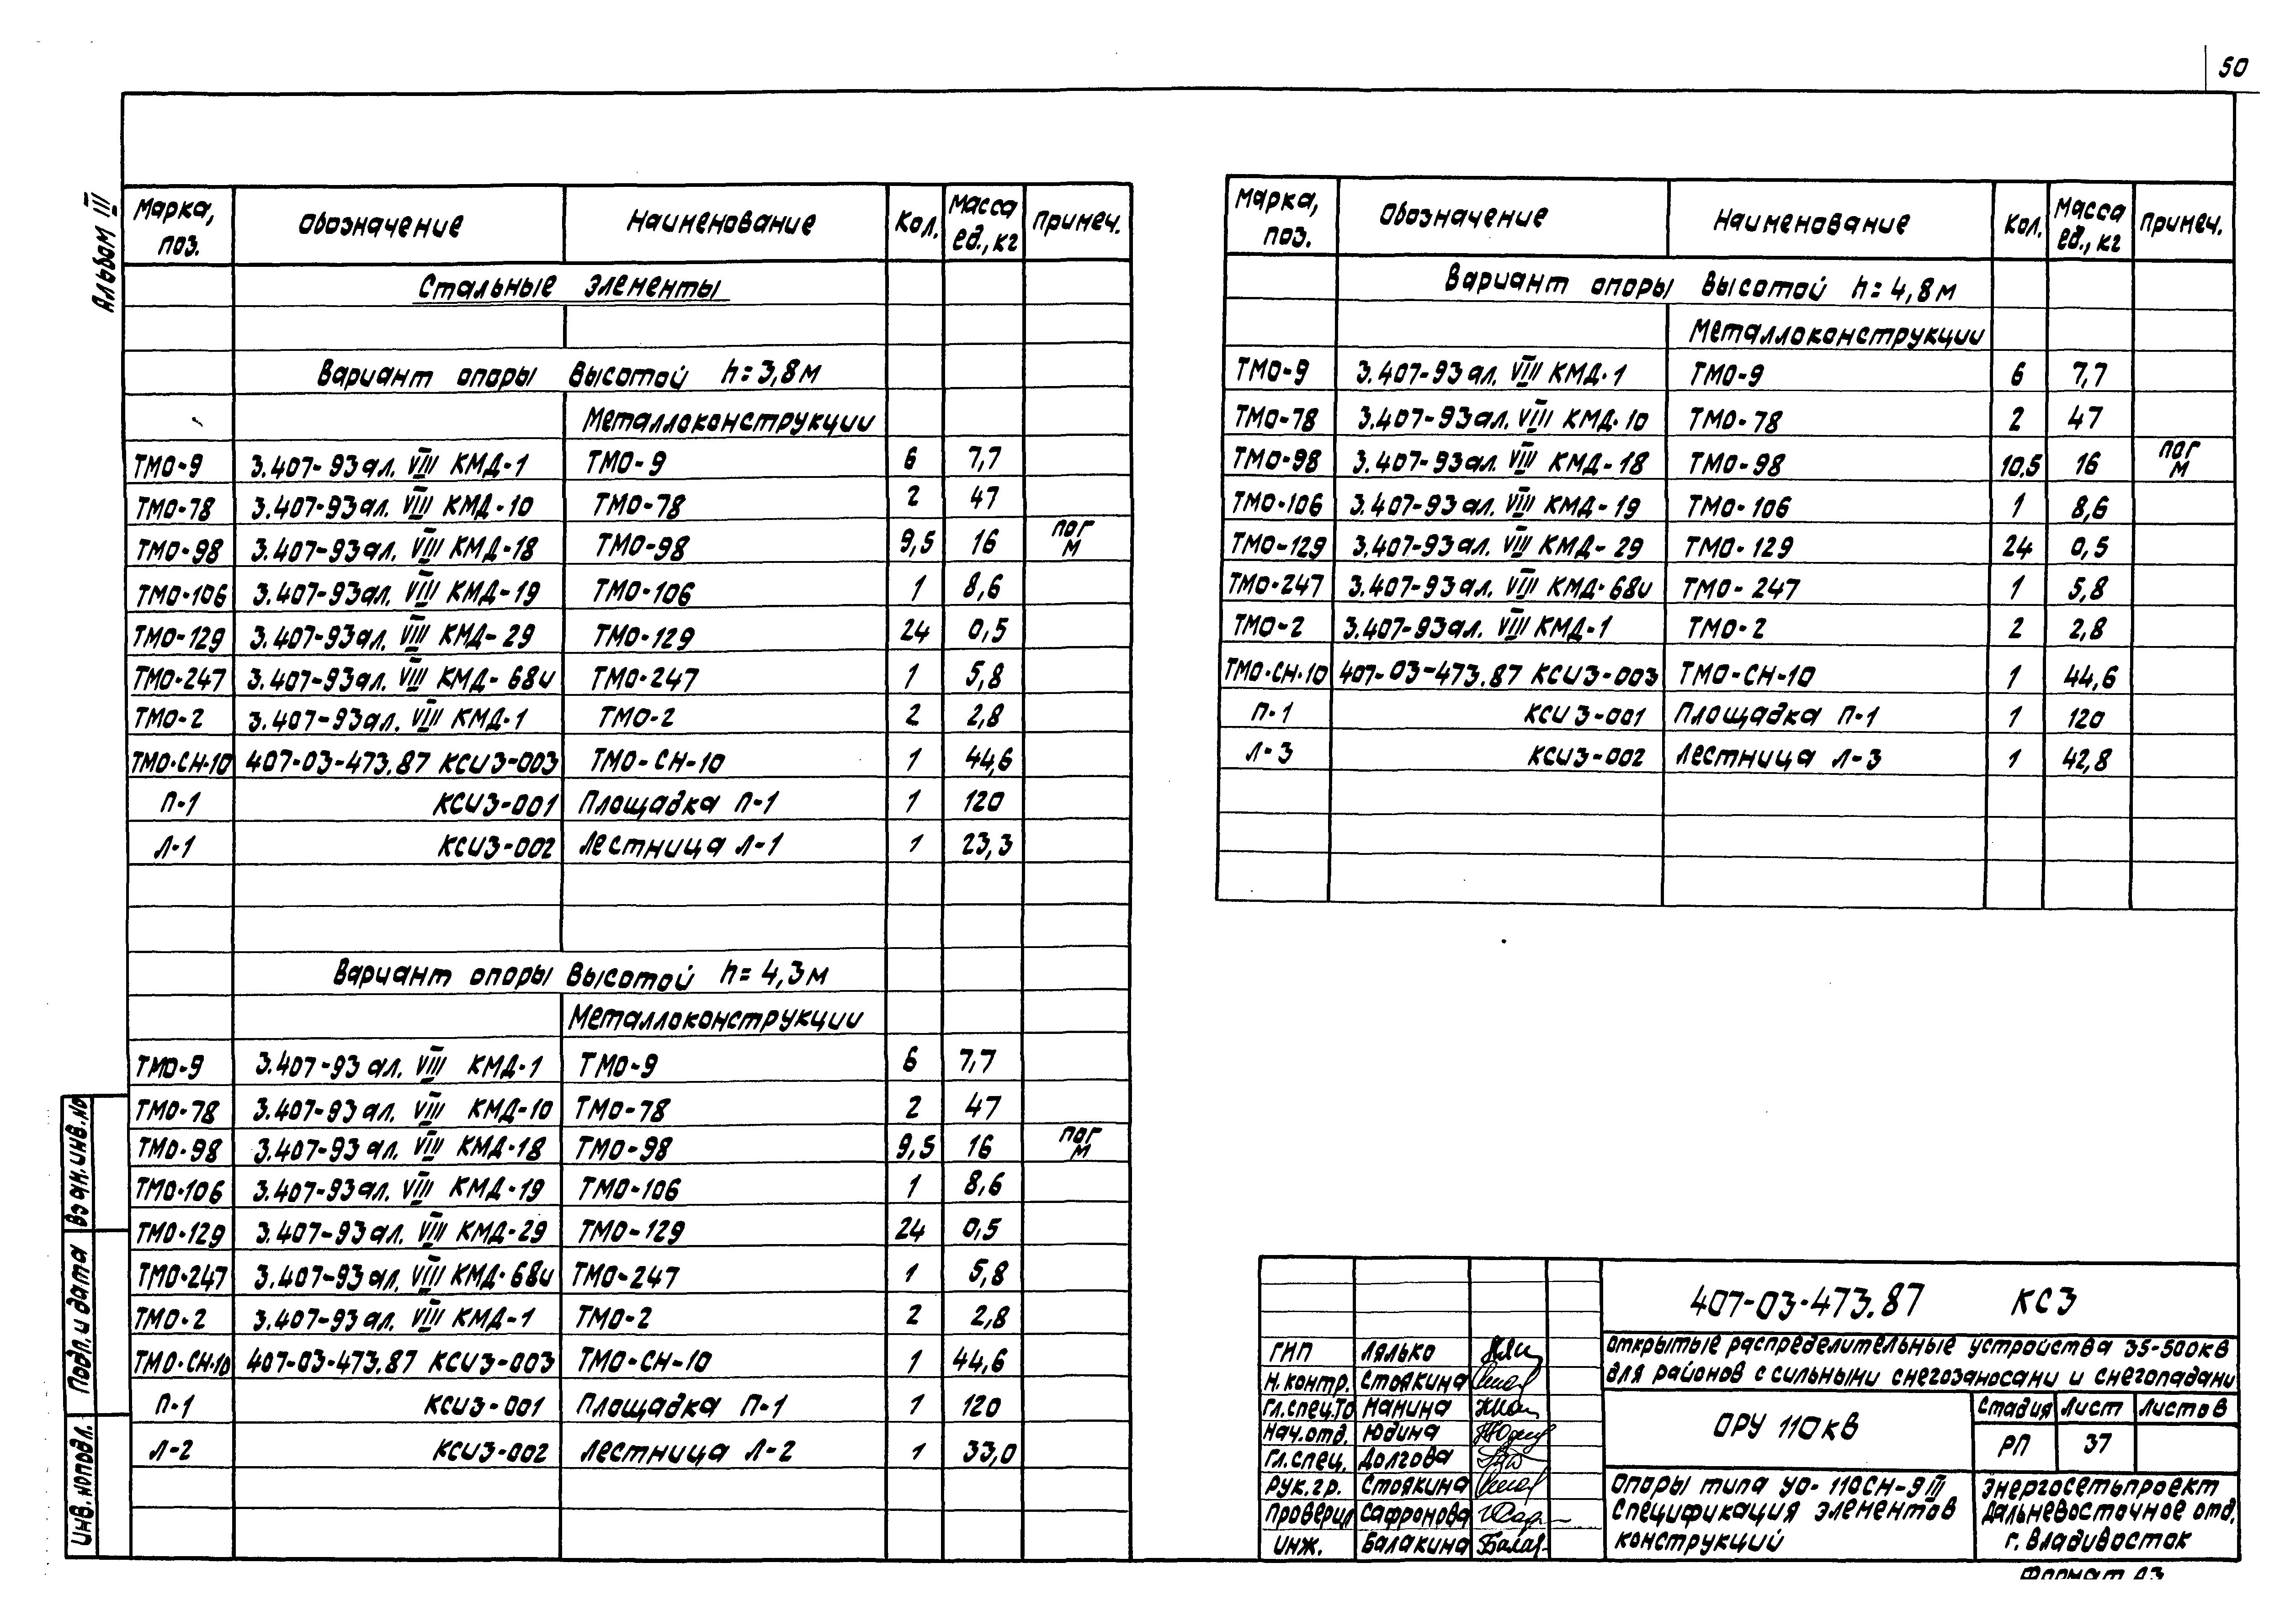 50
Альбом III
Марка, поз. Обозначение Наименование Кол. Масса ед., кг Примеч.
Стальные элементы
Вариант опоры высотой h=3,8м
Металлоконструкции
ТМО-9 3.407-93 ал. VIII КМД-1 ТМО-9 6 7,7
ТМО-78 3.407-93 ал. VIII КМД-10 ТМО-78 2 47
ТМО-98 3.407-93 ал. VIII КМД-18 ТМО-98 9,5 16 пог м
ТМО-106 3.407-93 ал. VIII КМД-19 ТМО-106 1 8,6
ТМО-129 3.407-93 ал. VIII КМД-29 ТМО-129 24 0,5
ТМО-247 3.407-93 ал. VIII КМД-68и ТМО-247 1 5,8
ТМО-2 3.407-93 ал. VIII КМД-1 ТМО-2 2 2,8
ТМО-СН-10 407-03-473.87 КСИ3-003 ТМО-СН-10 1 44,6
П-1 КСИ3-001 Площадка П-1 1 120
Л-1 КСИ3-002 Лестница Л-1 1 23,3
Вариант опоры высотой h=4,3м
Металлоконструкции
ТМО-9 3.407-93 ал. VIII КМД-1 ТМО-9 6 7,7
ТМО-78 3.407-93 ал. VIII КМД-10 ТМО-78 2 47
ТМО-98 3.407-93 ал. VIII КМД-18 ТМО-98 9,5 16 пог м
ТМО-106 3.407-93 ал. VIII КМД-19 ТМО-106 1 8,6
ТМО-129 3.407-93 ал. VIII КМД-29 ТМО-129 24 0,5
ТМО-247 3.407-93 ал. VIII КМД-68и ТМО-247 1 5,8
ТМО-2 3.407-93 ал. VIII КМД-1 ТМО-2 2 2,8
ТМО-СН-10 407-03-473.87 КСИ3-003 ТМО-СН-10 1 44,6
П-1 КСИ3-001 Площадка П-1 1 120
Л-2 КСИ3-002 Лестница Л-2 1 33,0
Марка, поз. Обозначение Наименование Кол. Масса ед., кг Примеч.
Вариант опоры высотой h=4,8м
Металлоконструкции
ТМО-9 3.407-93 ал. VIII КМД-1 ТМО-9 6 7,7
ТМО-78 3.407-93 ал. VIII КМД-10 ТМО-78 2 47
ТМО-98 3.407-93 ал. VIII КМД-18 ТМО-98 10,5 16 пог м
ТМО-106 3.407-93 ал. VIII КМД-19 ТМО-106 1 8,6
ТМО-129 3.407-93 ал. VIII КМД-29 ТМО-129 24 0,5
ТМО-247 3.407-93 ал. VIII КМД-68и ТМО-247 1 5,8
ТМО-2 3.407-93 ал. VIII КМД-1 ТМО-2 2 2,8
ТМО-СН-10 407-03-473.87 КСИ3-003 ТМО-СН-10 1 44,6
П-1 КСИ3-001 Площадка П-1 1 120
Л-3 КСИ3-002 Лестница Л-3 1 42,8
Взам.инв.№
Подп. и дата
Инв.№подл.
407-03-473.87 КС3
Открытые распределительные устройства 35-500кв
для районов с сильными снегозаносами и снегопадами
ГИП Лялько
Н.контр. Стоякина
Гл.спец.ТО Манина
Нач.отд. Юдина
Гл.спец. Долгова
Рук.гр. Стоякина
Проверил Сафронова
Инж. Балакина
ОРУ 110кв
Стадия Лист Листов
РП 37
Опоры типа УО-110СН-9 III
Спецификация элементов
конструкций
Энергосетьпроект
Дальневосточное отд.
г. Владивосток
Формат А3